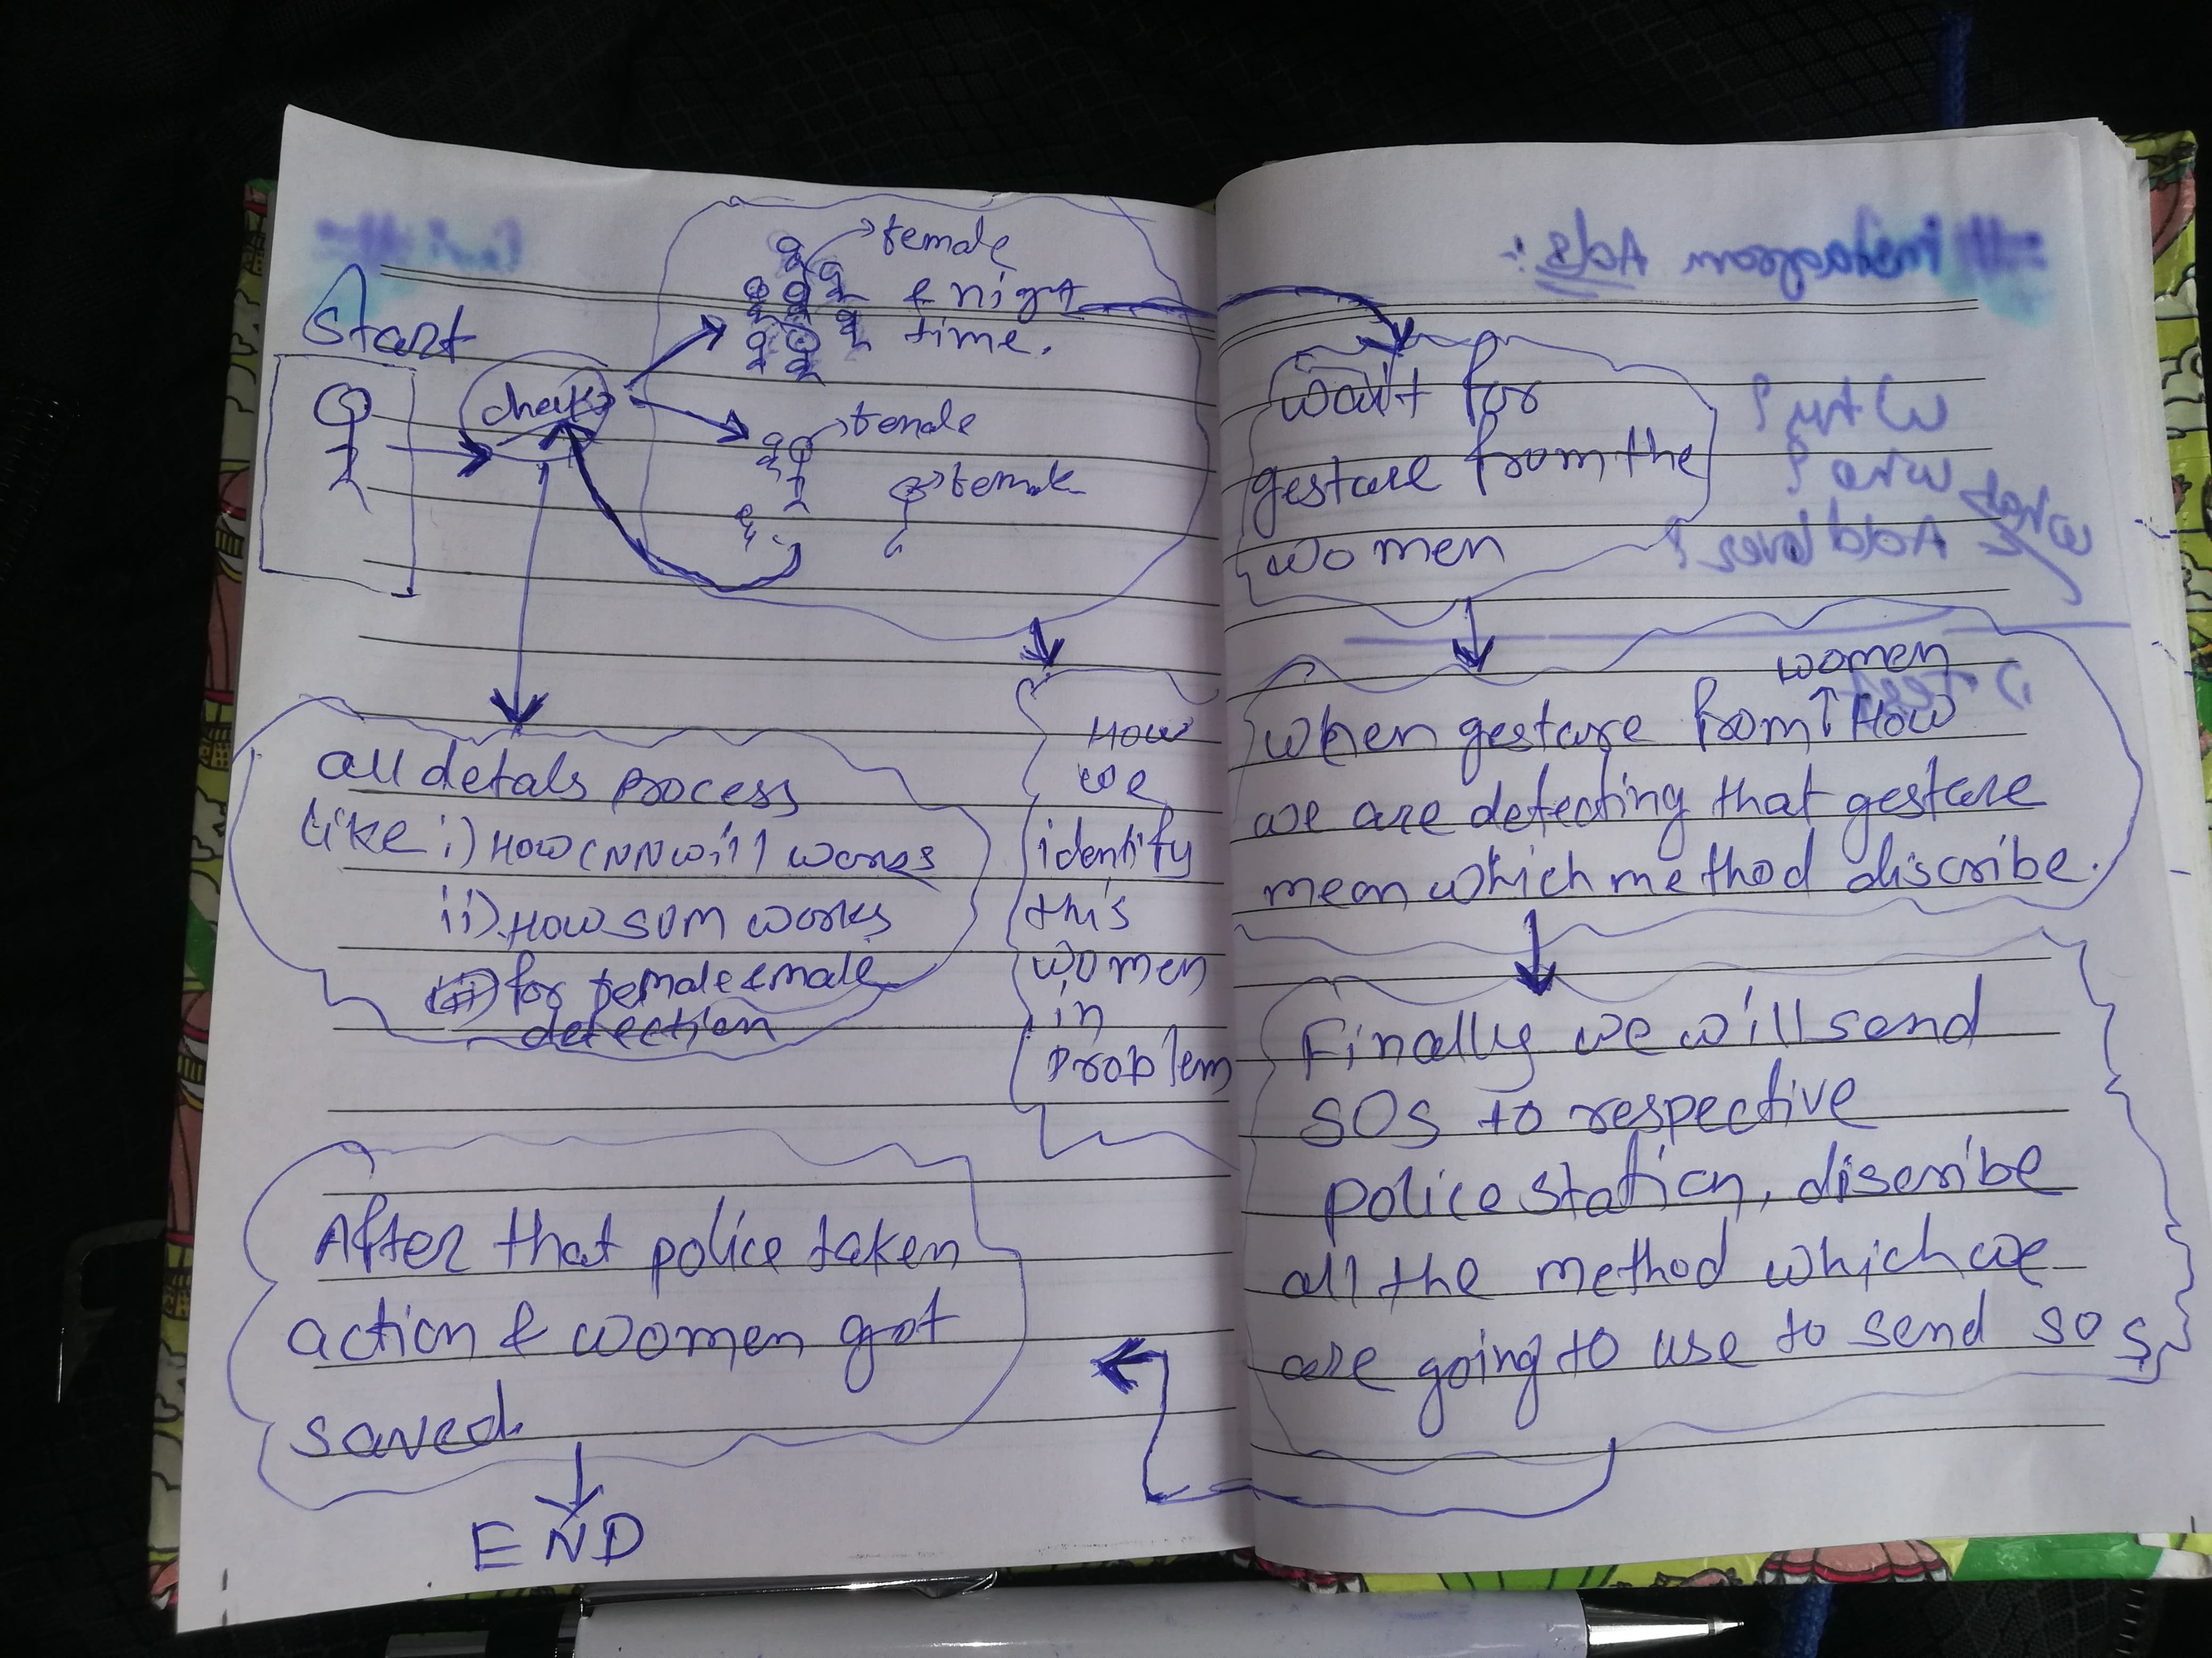 Start
check
female
& night
time.
female
female
all detals process
like i) How CNN will works
ii) How SVM works
for female & male
detection
How
we
identify
this
women
in
problem
After that police taken
action & women got
saved.
END
wait for
gestare from the
women
women
when gestare from ↑ How
we are detecting that gestare
mean which method discribe.
Finally we will send
SOS to respective
police station, discribe
all the method which we
are going to use to send SOS
Instagram Ads:-
Why?
who?
what
Add lover?